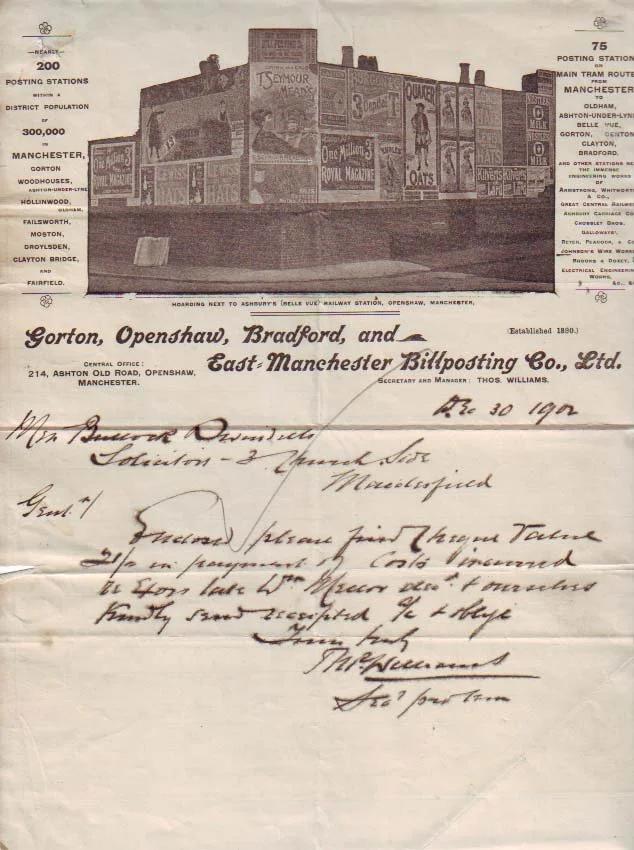 NEARLY
200
POSTING STATIONS
WITHIN A
DISTRICT POPULATION
OF
300,000
IN
MANCHESTER,
GORTON
WOODHOUSES,
ASHTON-UNDER-LYNE
HOLLINWOOD,
OLDHAM,
FAILSWORTH,
MOSTON,
DROYLSDEN,
CLAYTON BRIDGE,
AND
FAIRFIELD.
T SEYMOUR
MEAD'S
One Million 3D
ROYAL MAGAZINE
One Million 3D
ROYAL MAGAZINE
QUAKER
OATS
75
POSTING STATION
ON
MAIN TRAM ROUTE
FROM
MANCHESTER
TO
OLDHAM,
ASHTON-UNDER-LYN
BELLE VUE,
GORTON, DENTON
CLAYTON,
BRADFORD.
AND OTHER STATIONS NE
THE IMMENSE
ENGINEERING WORKS
OF
ARMSTRONG, WHITWORT
& CO.,
GREAT CENTRAL RAILWA
ASHBURY CARRIAGE CO
CROSSLEY BROS.
GALLOWAYS',
BEYER, PEACOCK, & CO
JOHNSON'S WIRE WORKS
BROOKS & DOXEY,
ELECTRICAL ENGINEERING
WORKS,
&C., &
HOARDING NEXT TO ASHBURY'S (BELLE VUE) RAILWAY STATION, OPENSHAW, MANCHESTER.
Gorton, Openshaw, Bradford, and
(Established 1890.)
East-Manchester Billposting Co., Ltd.
CENTRAL OFFICE:
214, ASHTON OLD ROAD, OPENSHAW,
MANCHESTER.
SECRETARY AND MANAGER: THOS. WILLIAMS.
Dec 30 1902
Bullock
Solicitors - 3 Church Side
Macclesfield
Gentn/
Enclosed please find Cheque Value
in payment of Costs incurred
Exors late Wm Mellor decd & ourselves
Kindly send receipted a/c & oblige
Yours truly
Thos Williams
Secy pro tem